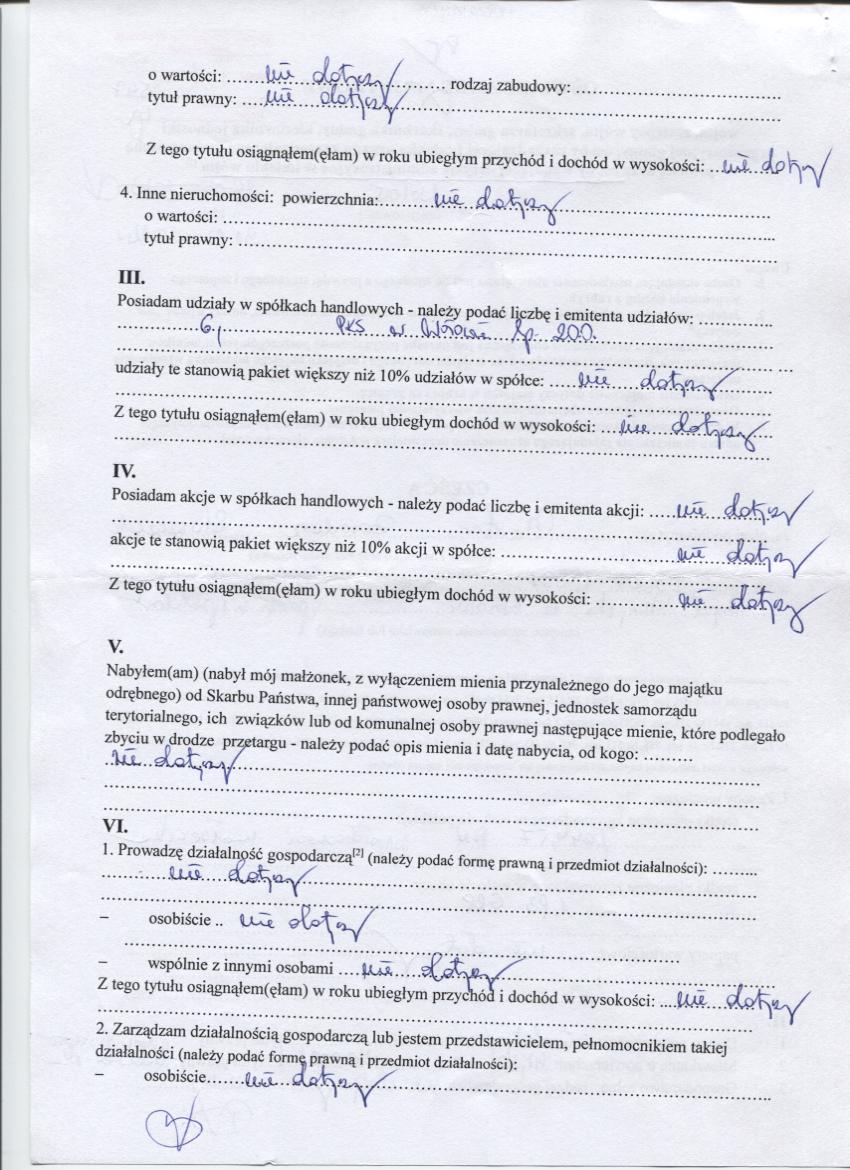 o wartości: ....... nie dotyczy ....... rodzaj zabudowy: .......
tytuł prawny: .... nie dotyczy .......
Z tego tytułu osiągnąłem(ęłam) w roku ubiegłym przychód i dochód w wysokości: .. nie dotyczy
4. Inne nieruchomości: powierzchnia: ....... nie dotyczy .......
o wartości: .......
tytuł prawny: .......
III.
Posiadam udziały w spółkach handlowych - należy podać liczbę i emitenta udziałów: .......
....... 6, PKS w Sp. zoo. .......
udziały te stanowią pakiet większy niż 10% udziałów w spółce: ..... nie dotyczy
Z tego tytułu osiągnąłem(ęłam) w roku ubiegłym dochód w wysokości: .... nie dotyczy
IV.
Posiadam akcje w spółkach handlowych - należy podać liczbę i emitenta akcji: ..... nie dotyczy
akcje te stanowią pakiet większy niż 10% akcji w spółce: ....... nie dotyczy
Z tego tytułu osiągnąłem(ęłam) w roku ubiegłym dochód w wysokości: ....... nie dotyczy
V.
Nabyłem(am) (nabył mój małżonek, z wyłączeniem mienia przynależnego do jego majątku
odrębnego) od Skarbu Państwa, innej państwowej osoby prawnej, jednostek samorządu
terytorialnego, ich związków lub od komunalnej osoby prawnej następujące mienie, które podlegało
zbyciu w drodze przetargu - należy podać opis mienia i datę nabycia, od kogo: ..........
nie dotyczy .......
VI.
1. Prowadzę działalność gospodarczą[2] (należy podać formę prawną i przedmiot działalności): .........
....... nie dotyczy .......
– osobiście .. nie dotyczy
– wspólnie z innymi osobami .... nie dotyczy .......
Z tego tytułu osiągnąłem(ęłam) w roku ubiegłym przychód i dochód w wysokości: .... nie dotyczy
2. Zarządzam działalnością gospodarczą lub jestem przedstawicielem, pełnomocnikiem takiej
działalności (należy podać formę prawną i przedmiot działalności):
– osobiście....... nie dotyczy .......